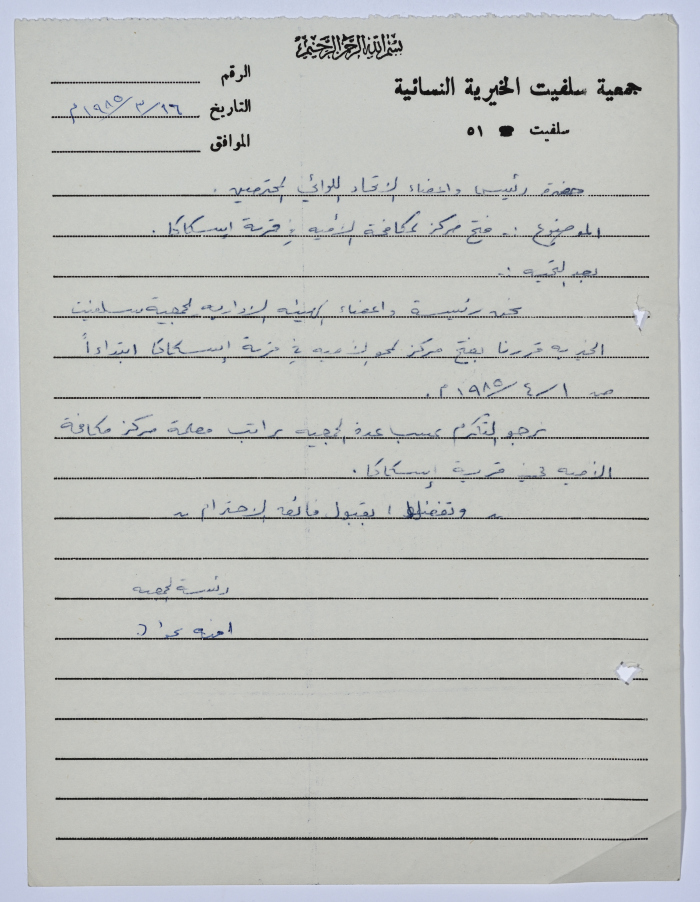 بسم الله الرحمن الرحيم
جمعية سلفيت الخيرية النسائية
سلفيت ☎ ٥١
الرقم
التاريخ ١٦/٣/١٩٨٥م
الموافق
حضرة رئيس واعضاء الاتحاد اللوائي المحترمين .
الموضوع :. فتح مركز لمكافحة الأميه في قرية اسكاكا .
بعد التحيه :.
نحن رئيسة واعضاء الهيئه الاداريه لجمعية سلفيت
الخيريه قررنا بفتح مركز لمحو الاميه في قرية إسكاكا ابتداءاً
من ١/٤/١٩٨٥م .
نرجو التكرم بمساعدة الجمعيه براتب معلمة مركز مكافحة
الأميه في قرية إسكاكا .
وتفضلوا بقبول فائق الاحترام
رئيسة الجمعيه
امنه